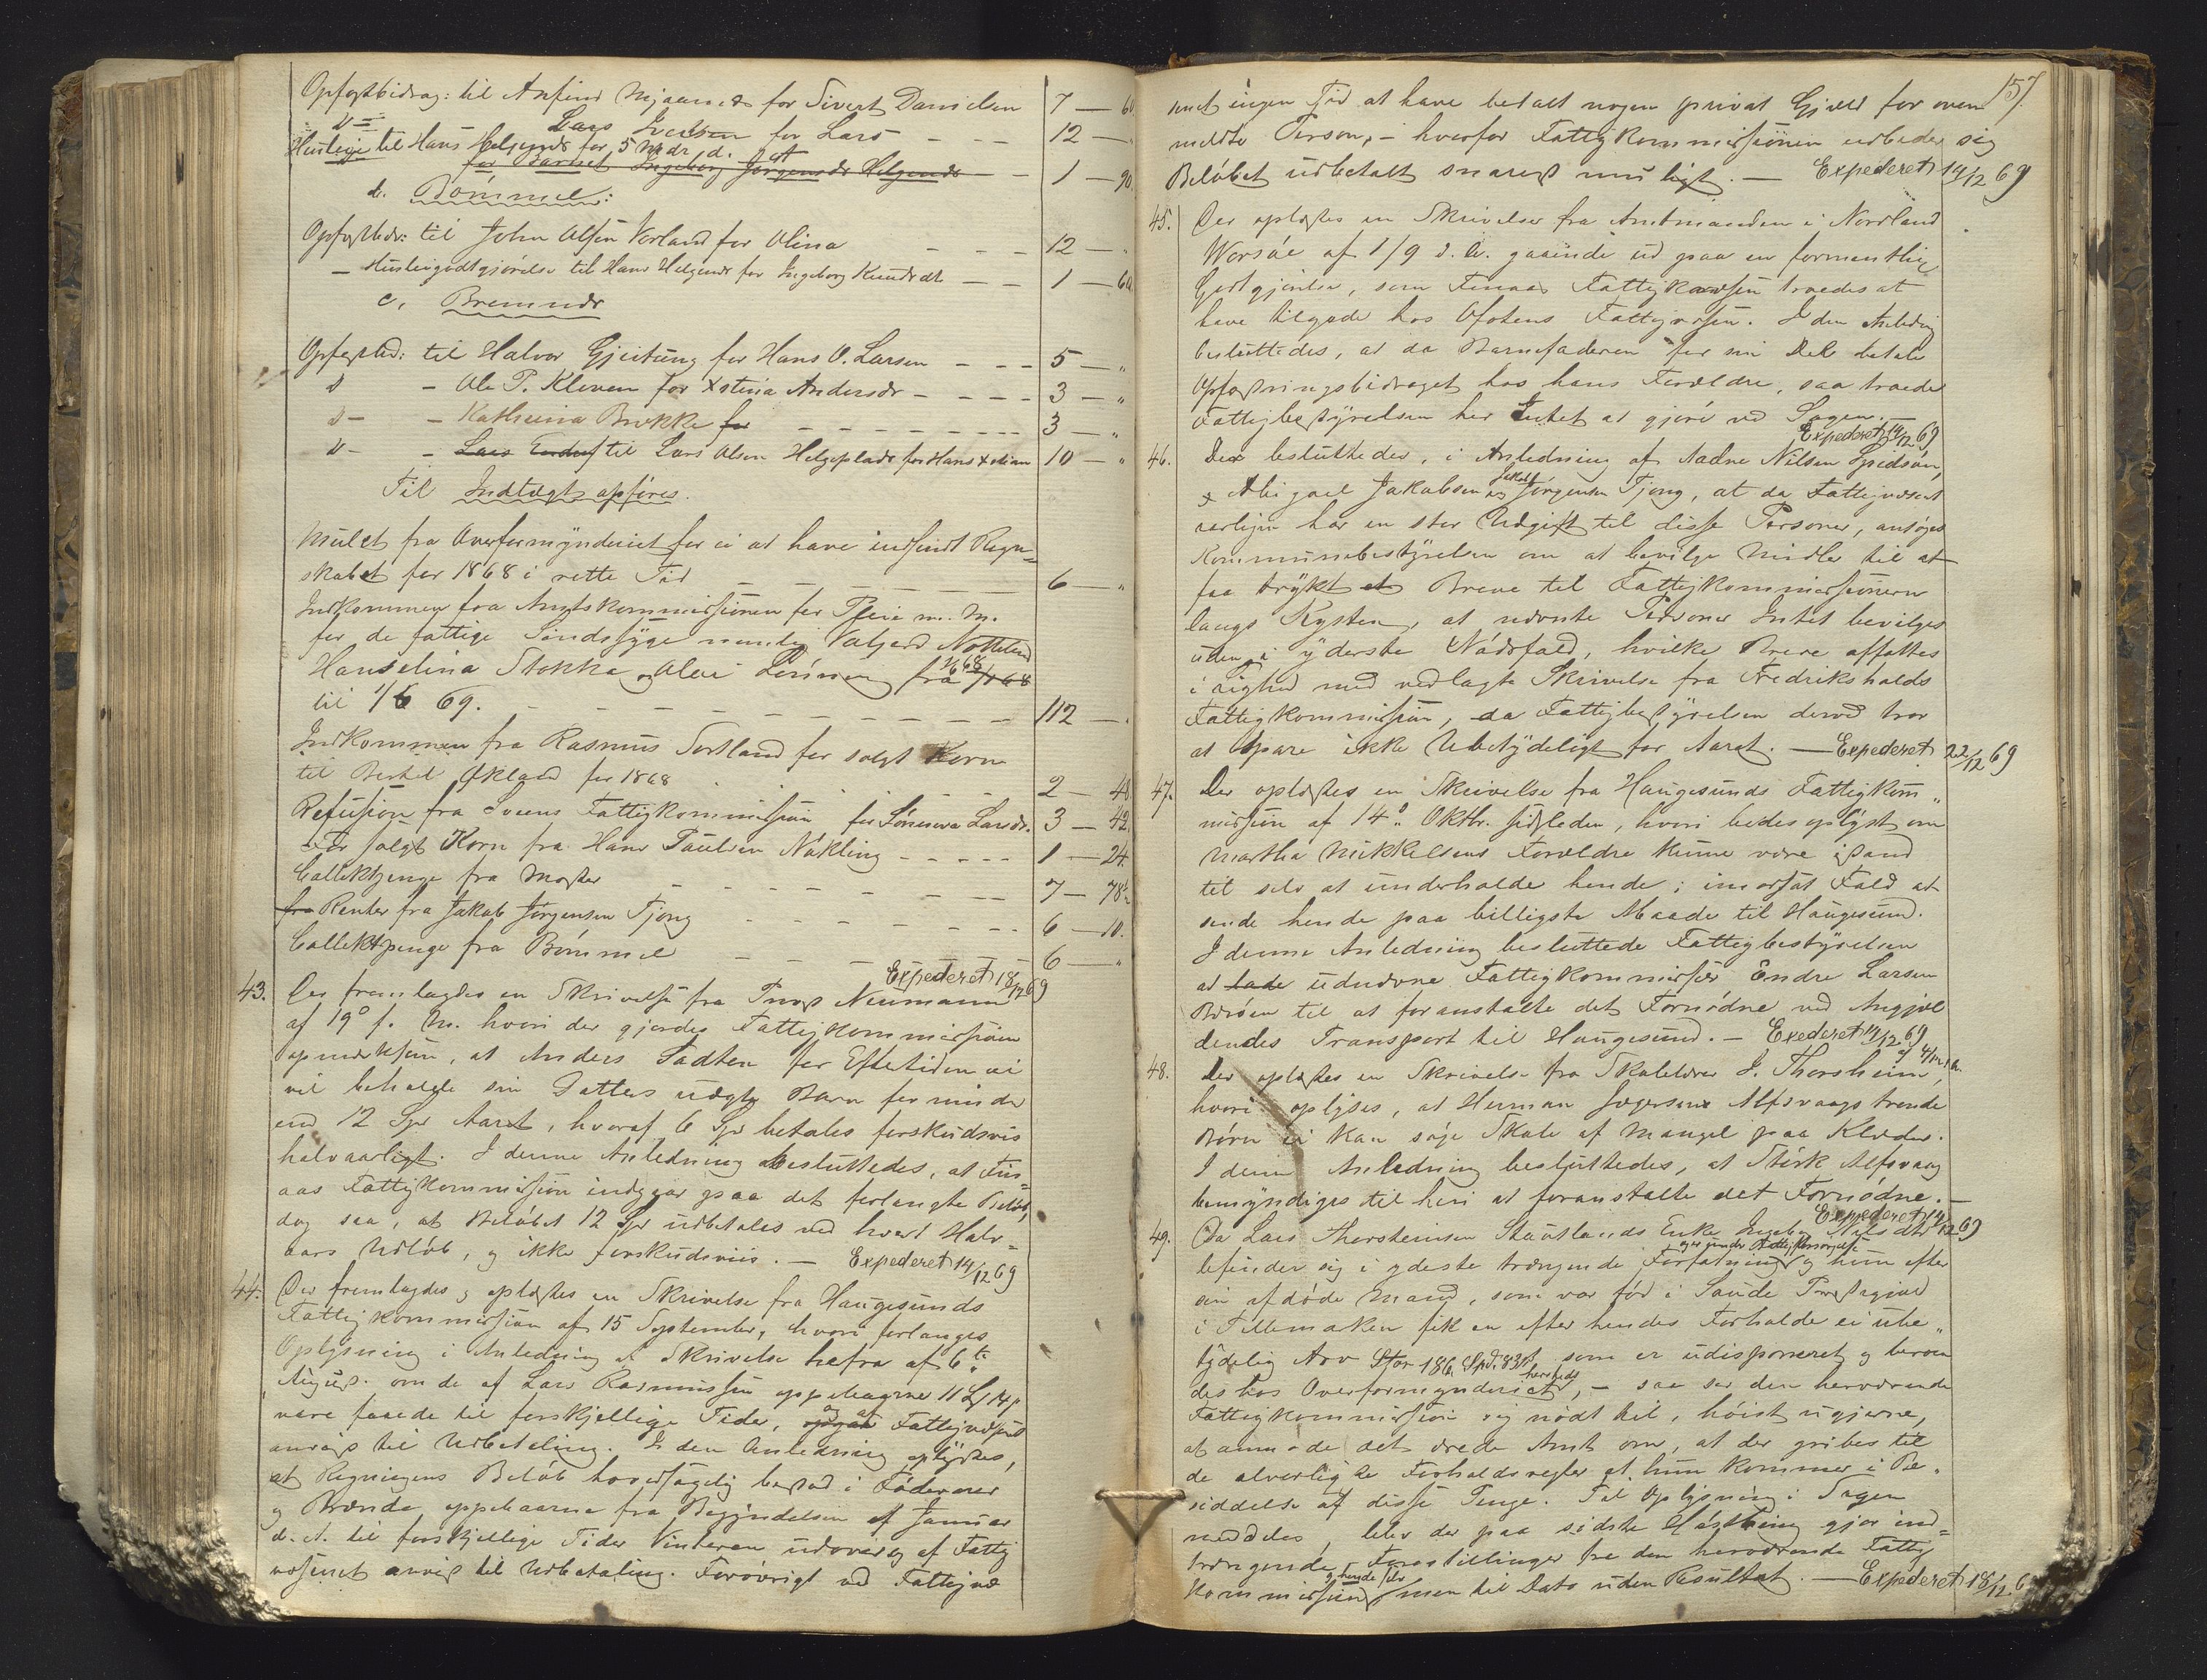 Opfostbidrag: til Anfind Mjaanæs for Sivert Danielsen 7 — 60
do Lars Iversen for Lars - - - 12 — "
Huusleie til Hans Helgenæs for 5 Mdr d.
for Barnet Ingeborg Jørgensdr Helgenæs - - 1 — 90.
b. Bømmel:
Opfostbdr: til John Olsen Vorland for Olina - - - 12 — "
— Husleiegodtgjørelse til Hans Helgenæs for Ingeborg Knudsdtr - - - 1 — 60
c. Bremnæs
Opfostbd: til Halvor Gjeitung for Hans O. Larsen - - - 5 — "
d - Ole P. Kleven for Xstina Andersdr - - - - 3 — "
d - - Katharina Brokke for - - - - - - - 3 — "
d - - Lars til Lars Olsen Helgeplads for Hans Xstian 10 — "
Til Indtægt opføres.
Mulct fra Overformynderiet for ei at have indsendt Regn=
skabet for 1868 i rette Tid - - - - - 6 — "
Indkommen fra Amtskommissionen for Pleie m. M.
for de fattige Sindssyge nemlig Valgerd Notteland
Hanselina Stokke og Alei Lønning fra 1/6 68
til 1/6 69. - - - - - - - - - - 112 — .
Indkommen fra Rasmus Sortland for solgt Korn
til Bertel Økland for 1868 - - - 2 — 48
Refusion fra Sveens Fattigkommission for Sønneva Larsdr. 3 — 42.
For solgt Korn fra Hans Paulsen Nökling - - - - - 1 — 24.
Collektpenge fra Moster - - - - - - - 7 — 78½
fra Renter fra Jakob Jørgensen Tjong - - - - - - 6 — 10.
Collektpenge fra Bømmel - - - - - - 6 — "
Expederet 18/12 69
43. Der fremlagdes en Skrivelse fra Provst Neumann
af 19de f. M. hvori der gjordes Fattigkommissionen
opmærksom, at Anders Sadten for Eftertiden ei
vil beholde sin Datters uægte Barn for mindre
end 12 Spd Aaret, hvoraf 6 Spd betales forskudsvis
halvaarligt. I denne Anledning besluttedes, at Fin=
aas Fattigkommission indgaar paa det forlangte Beløb,
dog saa, at Beløbet 12 Spd udbetales ved hvert Halv=
aars Udløb, og ikke forskudsviis. — Expederet 14/12 69
44. Der fremlagdes og oplæstes en Skrivelse fra Haugesunds
Fattigkommission af 15 September, hvori forlanges
Oplysning i Anledning af Skrivelse herfra af 6te
August. om de af Lars Rasmussen oppebaarne 11 Spd 14 s
vare faaede til forskjellige Tider, og af Fattigvæsenet
anviist til Udbetaling. I den Anledning oplystes,
at Regningens Beløb hovedsagelig bestod i Fødevarer
og Brænde oppebaarne fra Begyndelsen af Januar
d. A. til forskjellige Tider Vinteren udover og af Fattig
væsenet anvist til Udbetaling. Forøvrigt ved Fattigvæ
157.
senet ingen Tid at have betalt nogen privat Gjæld for oven
meldte Person, - hvorfor Fattigkommissionen udbeder sig
Beløbet udbetalt snarest muligt. — Expederet 14/12 69
45. Der oplæstes en Skrivelse fra Amtmanden i Nordland
Worsöe af 1/9 d. A. gaaende ud paa en formentlig
Godtgjørelse, som Finaas Fattigkassen troedes at
have tilgode hos Ofotens Fattigvæsen. I den Anledning
besluttedes, at da Barnefaderen for sin Del betale
Opfostringsbidraget hos hans Forældre, saa troede
Fattigbestyrelsen her Intet at gjøre ved Sagen. —
Expederet 14/12 69
46. Der besluttedes, i Anledning af Aadne Nilsen Spidsøen,
x Abigael Jakobsen og Jakob Jørgensen Tjong, at da Fattigvæsenet
aarligen har en stor Udgift til disse Personer, ansøges
Kommunebestyrelsen om at bevilge Midler til at
faa trykt et Breve til Fattigkommissionerne
langs Kysten, at nævnte Personer Intet bevilges
uden i yderste Nødsfald, hvilke Breve affattes
i Lighed med vedlagte Skrivelse fra Fredrikshalds
Fattigkommission, da Fattigbestyrelsen derved tror
at spare ikke Ubetydeligt for Aaret. — Expederet 22/12 69
47. Der oplæstes en Skrivelse fra Haugesunds Fattigkom"
mission af 14de Oktbr. sidstleden, hvori bedes oplyst om
Martha Mikkelsens Forældre kunne være istand
til selv at underholde hende; i modsat Fald at
sende hende paa billigste Maade til Haugesund.
I denne Anledning besluttede Fattigbestyrelsen
at lade udnævne Fattigkommissær Endre Larsen
Børøen til at foranstalte det Fornødne ved Angjæl
dendes Transport til Haugesund. — Exederet 14/12 69
48. Der oplæstes en Skrivelse fra Skolelærer J. Thorsheim,
hvori oplyses, at Herman Jægersens Alfsvaags trende
Børn ei kan søge Skole af Mangel paa Klæder.
I denne Anledning besluttedes, at Størk Alfsvaag
bemyndiges til heri at foranstalte det Fornødne. —
Expederet 14/12 69
49. Da Lars Thorsteinsen Stautlands Enke Ingebor Nilsdtr
befinder sig i yderste trængende Forfatning og er under Fattigforsørgelse og hun efter
sin afdøde Mand, som var fød i Saude Præstegjeld
i Tellemarken fik en efter hendes Forholde ei ube"
tydelig Arv Stor 186 Spd. 83 s, som er udisponeret og beroen
des hos Overformynderiet hersteds, - saa ser den herværende
Fattigkommission sig nødt til, høist ugjerne,
at anmode det ærede Amt om, at der gribes til
de alverligste Forholdsregler at hun kommer i Be"
siddelse af disse Penge. Til Oplysning i Sagen
meddeles, blev der paa sidste Høstthing gjor ind=
trængende Forestillinger fra den herværende Fattig
kommission og hende selv men til Dato uden Resultat. — Expederet 18/12 6